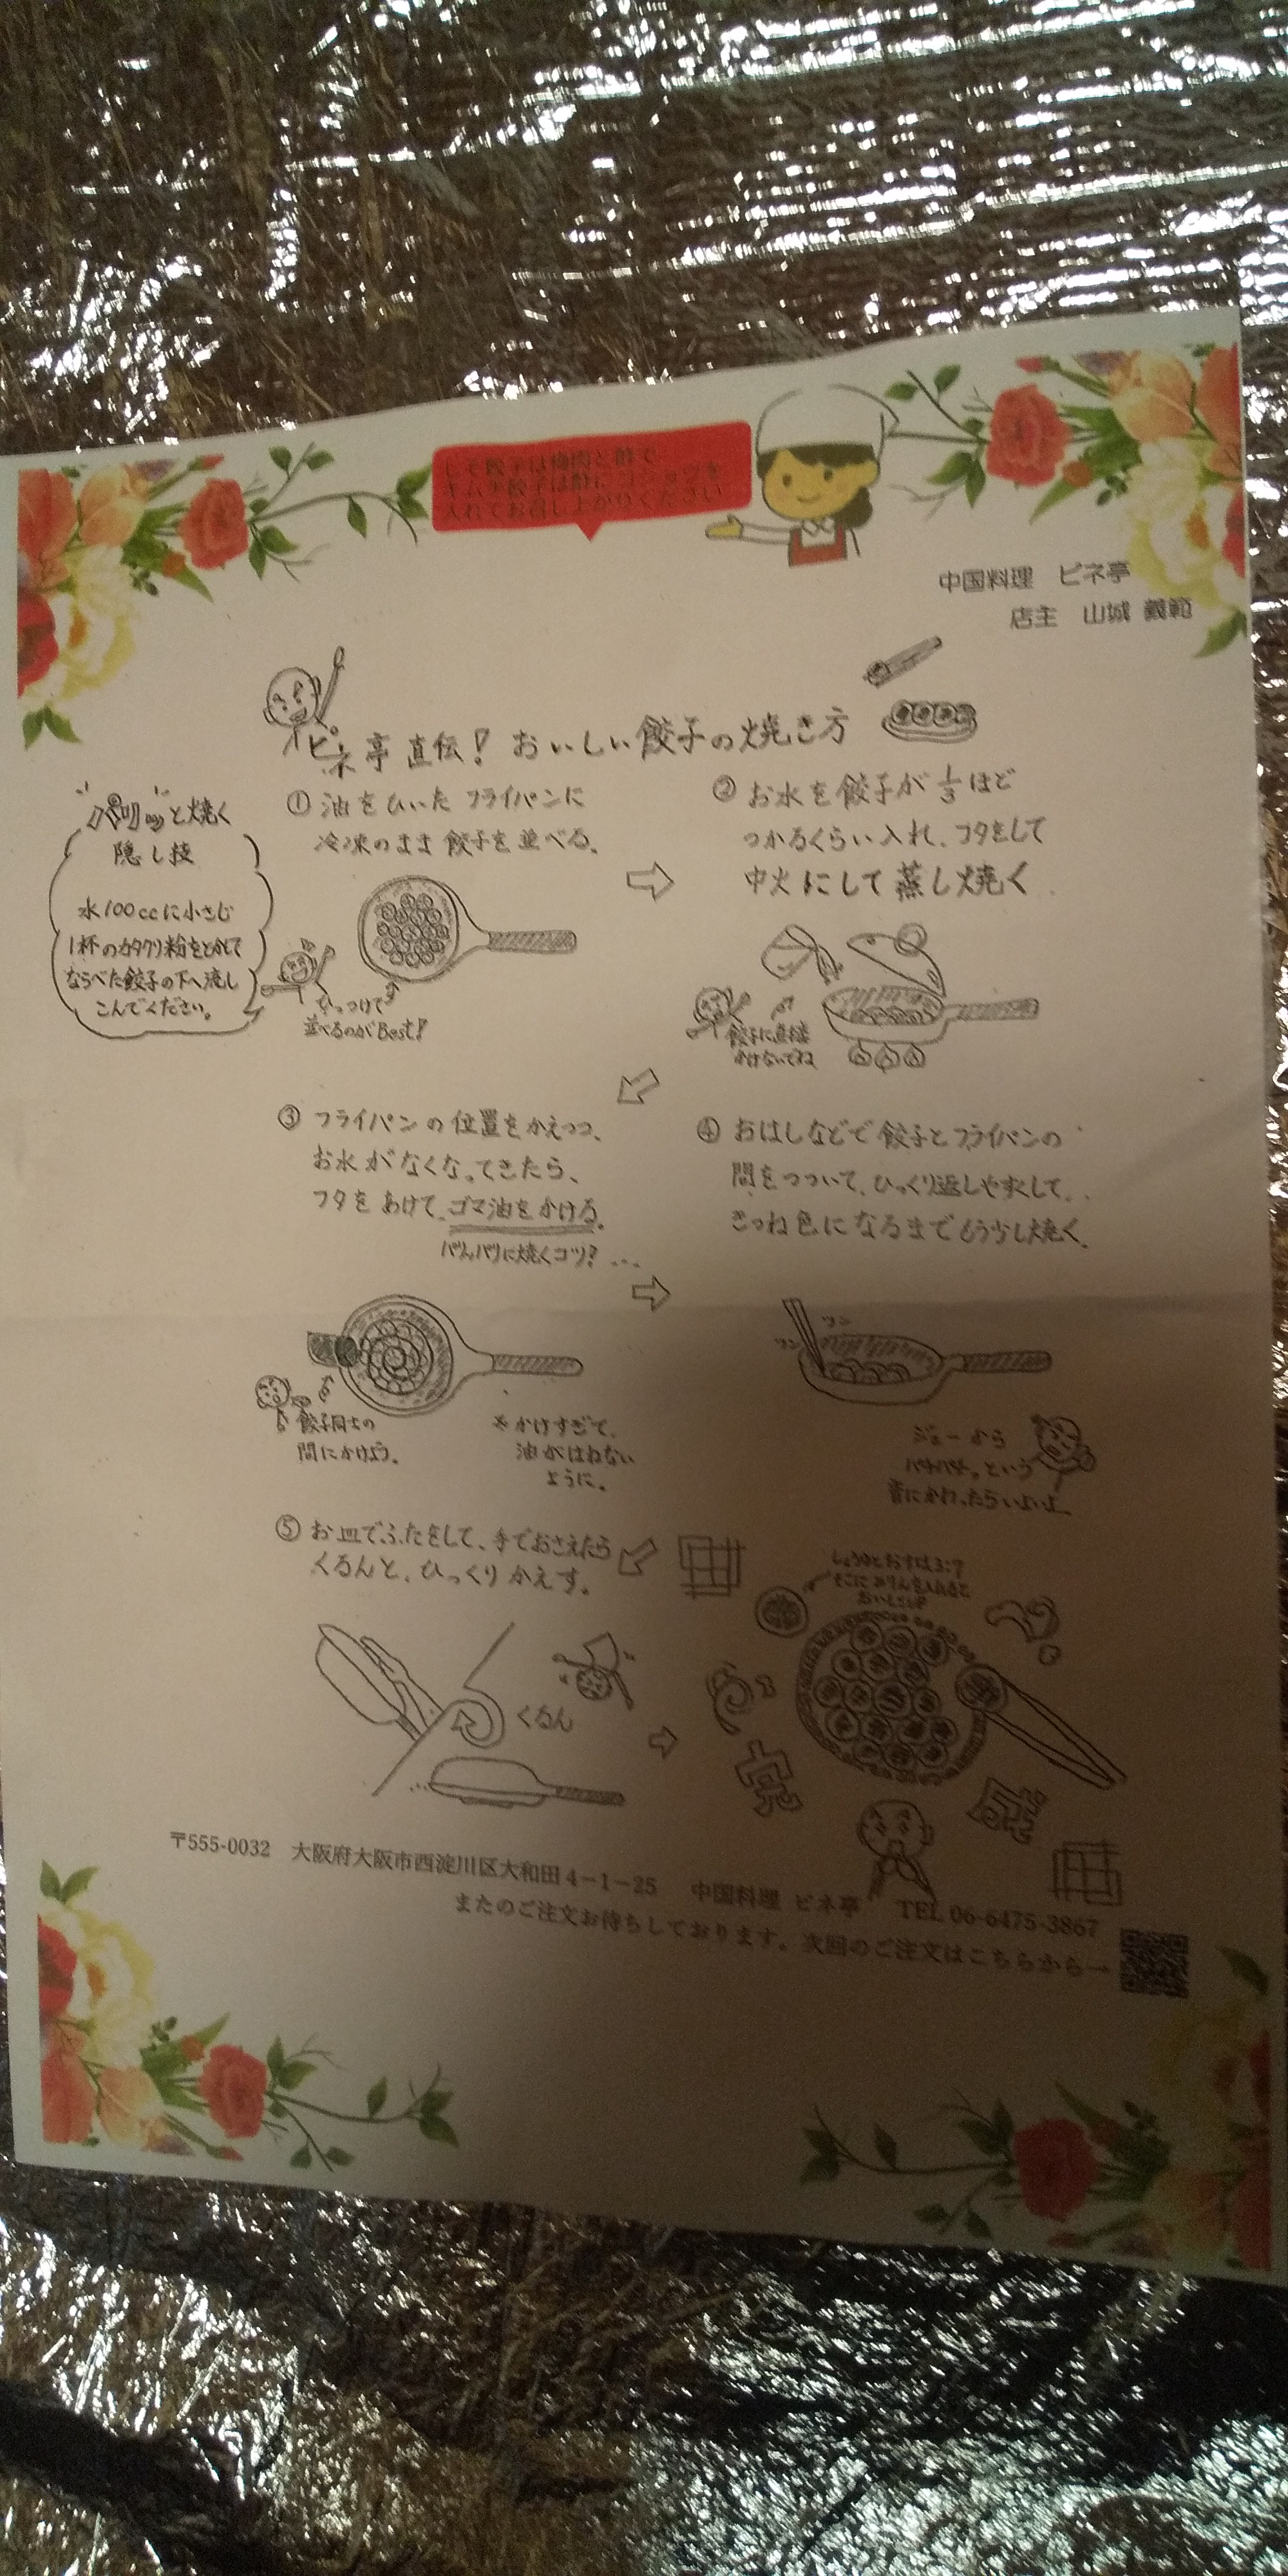 しそ餃子は梅肉と酢で
キムチ餃子は酢にコショウを
入れてお召し上がりください
中国料理 ピネ亭
店主 山城 義範
ピネ亭 直伝! おいしい餃子の焼き方
"パリッ"と焼く
隠し技
水100ccに小さじ
1杯のカタクリ粉をとかして
ならべた餃子の下へ流し
こんでください。
① 油をひいた フライパンに
冷凍のまま 餃子を並べる。
ひっつけて
並べるのがBest!
② お水を餃子が1/3ほど
つかるくらい入れ、フタをして
中火にして蒸し焼く
餃子に直接
かけないでね
③ フライパンの位置をかえつつ、
お水がなくなってきたら、
フタをあけて、ゴマ油をかける。
パリパリに焼くコツ? …
餃子同士の
間にかけよう。
※かけすぎて、
油がはねない
ように。
④ おはしなどで餃子とフライパンの
間をつついて、ひっくり返しやすくして、
きつね色になるまでもう少し焼く。
ツン
ツン
ジューから
パチパチっという
音にかわったらいいよ
⑤ お皿でふたをして、手でおさえたら
くるんと、ひっくりかえす。
くるん
しょうゆとおすは3:7
そこにみりんを入れると
おいしい
完
成
〒555-0032 大阪府大阪市西淀川区大和田4-1-25 中国料理 ピネ亭 TEL 06-6475-3867
またのご注文お待ちしております。次回のご注文はこちらから→